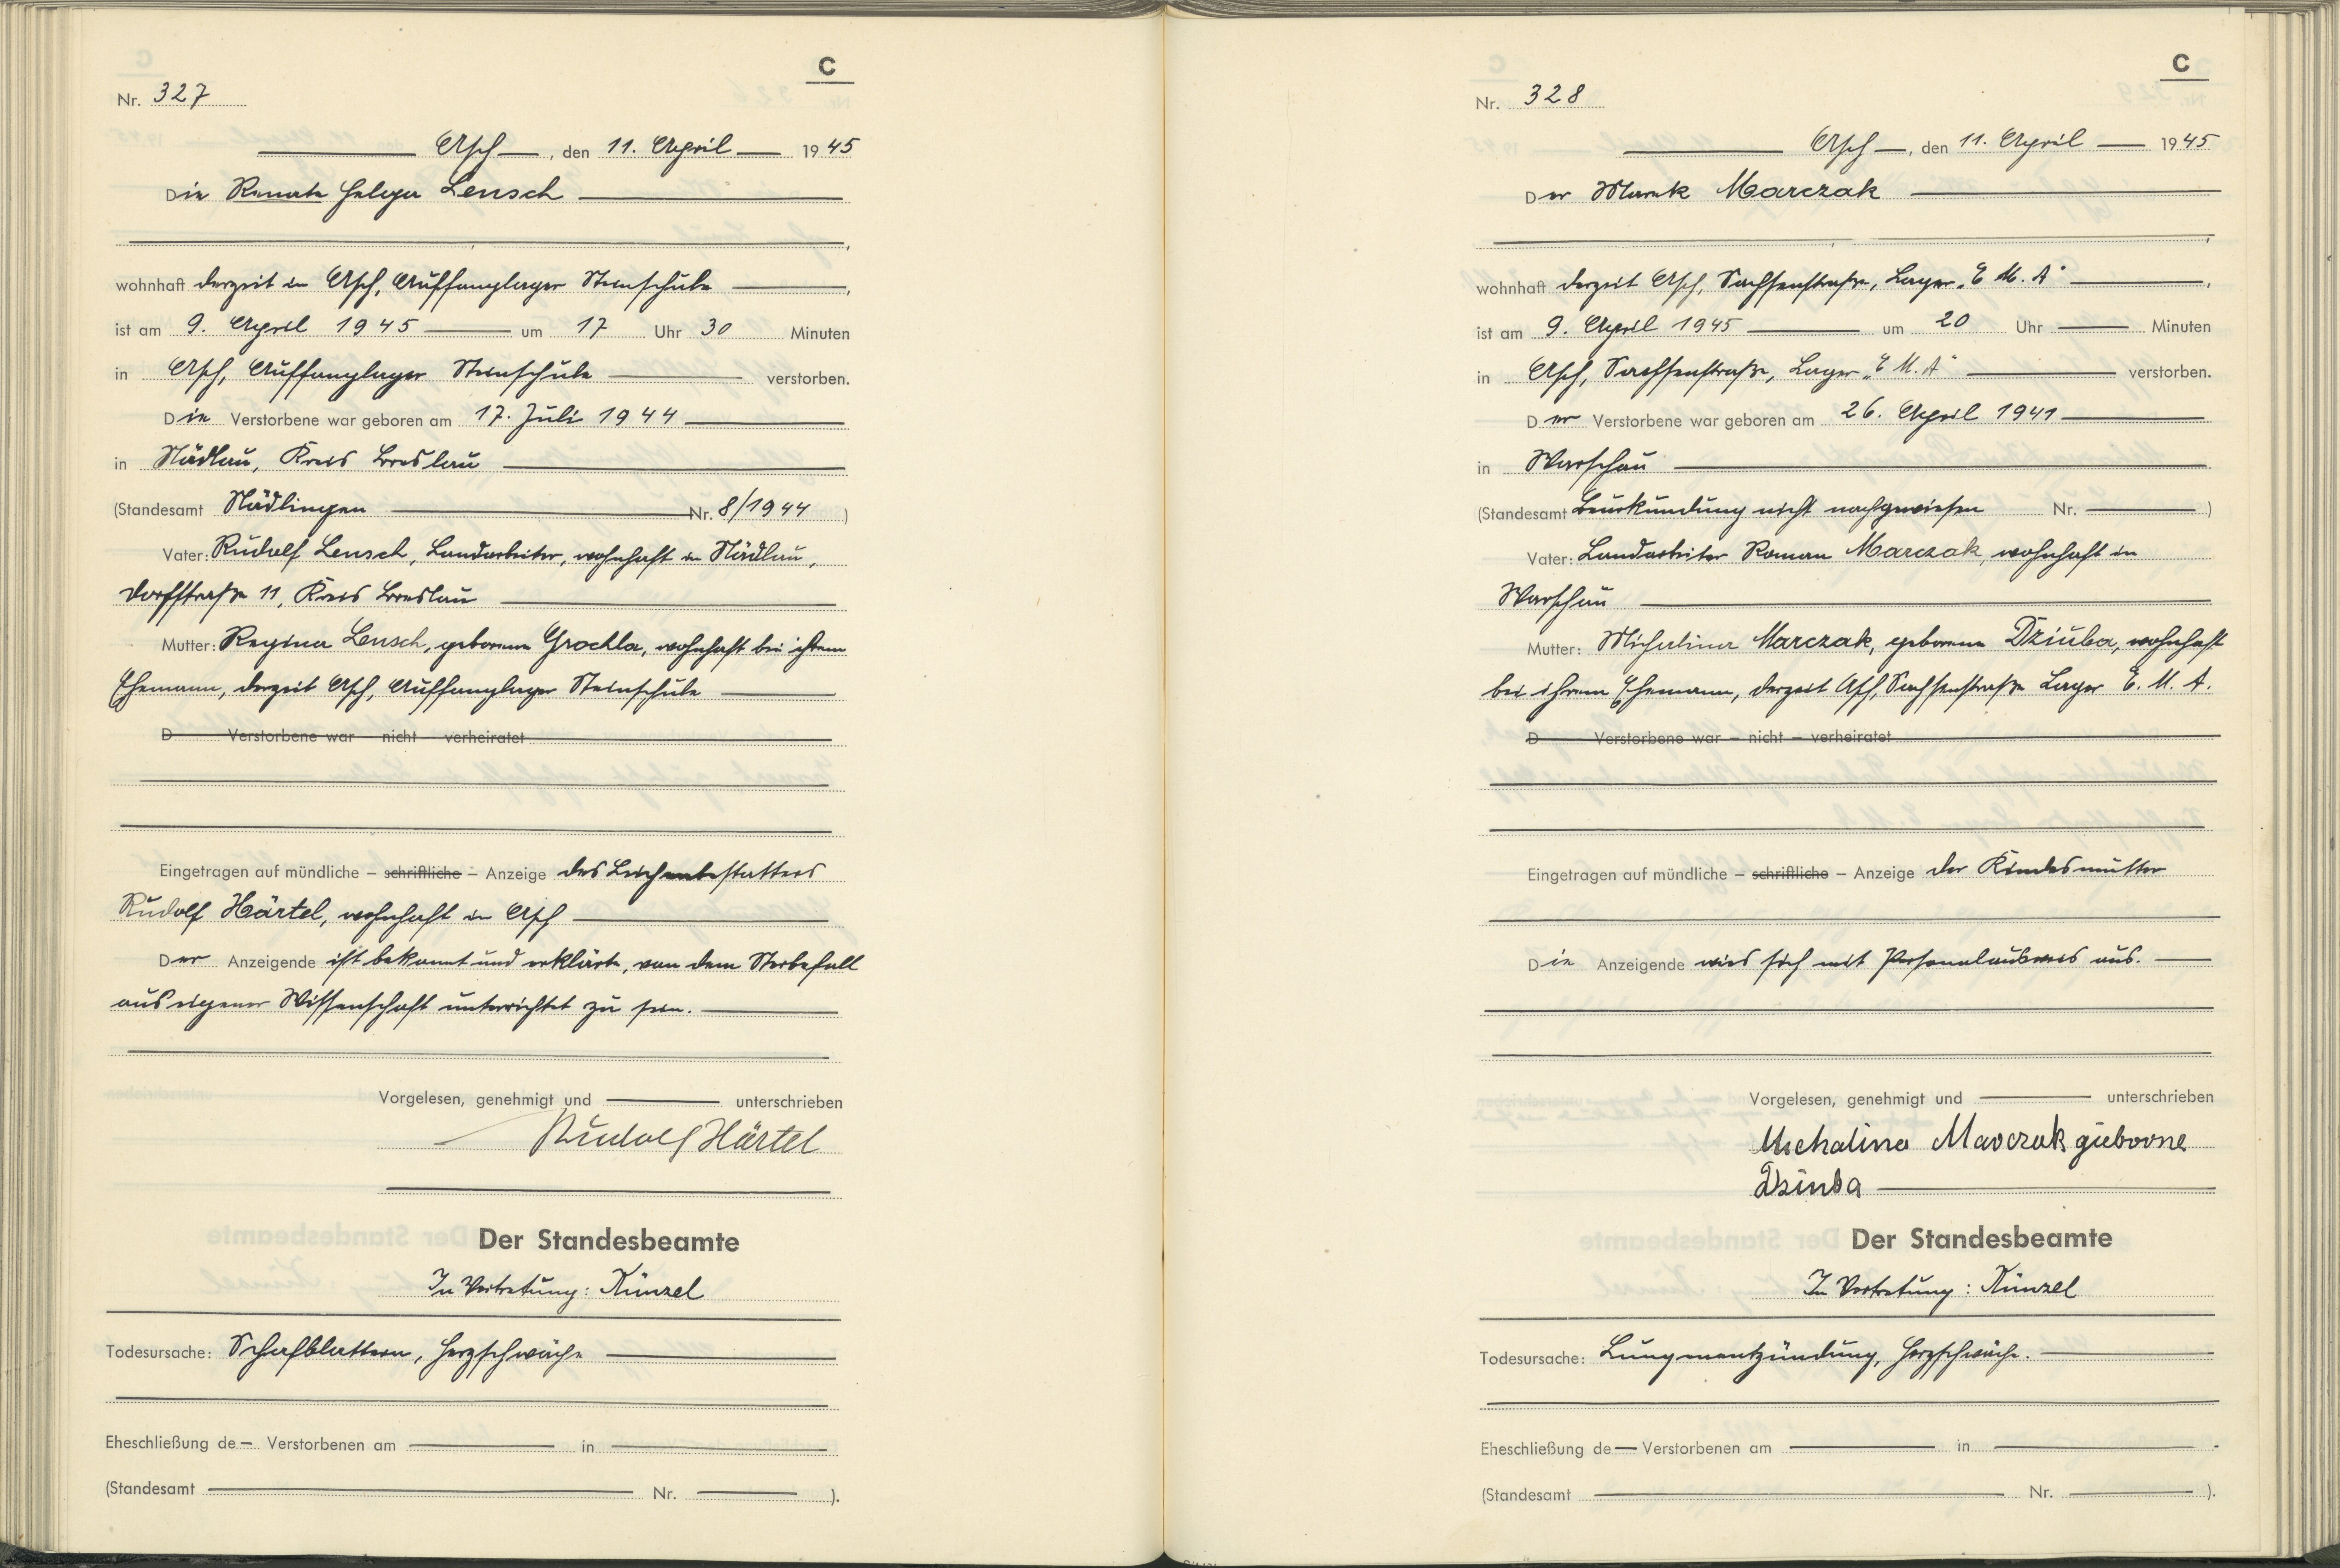 C
Nr. 327
Asch, den 11. April 1945
Die Renate Helga Lensch
wohnhaft derzeit in Asch, Auffanglager Steinschule,
ist am 9. April 1945 um 17 Uhr 30 Minuten
in Asch, Auffanglager Steinschule verstorben.
Die Verstorbene war geboren am 17. Juli 1944
in Nädlau, Kreis Breslau
(Standesamt Nädlingen Nr. 8/1944)
Vater: Rudolf Lensch, Landarbeiter, wohnhaft in Nädlau,
Dorfstraße 11, Kreis Breslau
Mutter: Regina Lensch, geborene Grochla, wohnhaft bei ihrem
Ehemann, derzeit Asch, Auffanglager Steinschule
D Verstorbene war – nicht – verheiratet
Eingetragen auf mündliche – schriftliche – Anzeige des Leichenbestatters
Rudolf Härtel, wohnhaft in Asch
Der Anzeigende ist bekannt und erklärte, von dem Sterbefall
aus eigener Wissenschaft unterrichtet zu sein.
Vorgelesen, genehmigt und unterschrieben
Rudolf Härtel
Der Standesbeamte
In Vertretung: Künzel
Todesursache: Schafblattern, Herzschwäche
Eheschließung de Verstorbenen am in
(Standesamt Nr. ).
C
Nr. 328
Asch, den 11. April 1945
Der Marek Marczak
wohnhaft derzeit Asch, Sachsenstraße, Lager „E. M. A"
ist am 9. April 1945 um 20 Uhr Minuten
in Asch, Sachsenstraße, Lager „E M. A" verstorben.
Der Verstorbene war geboren am 26. April 1941
in Warschau
(Standesamt Beurkundung nicht nachgewiesen Nr. )
Vater: Landarbeiter Roman Marczak, wohnhaft in
Warschau
Mutter: Michalina Marczak, geborene Dziuba, wohnhaft
bei ihrem Ehemann, derzeit Asch, Sachsenstraße Lager E. M. A.
D Verstorbene war – nicht – verheiratet
Eingetragen auf mündliche – schriftliche – Anzeige der Kindesmutter
Die Anzeigende wies sich mit Personalausweis aus.
Vorgelesen, genehmigt und unterschrieben
Michalina Marczak gieborne
Dziuba
Der Standesbeamte
In Vertretung: Künzel
Todesursache: Lungenentzündung, Herzschwäche.
Eheschließung de Verstorbenen am in
(Standesamt Nr. ).